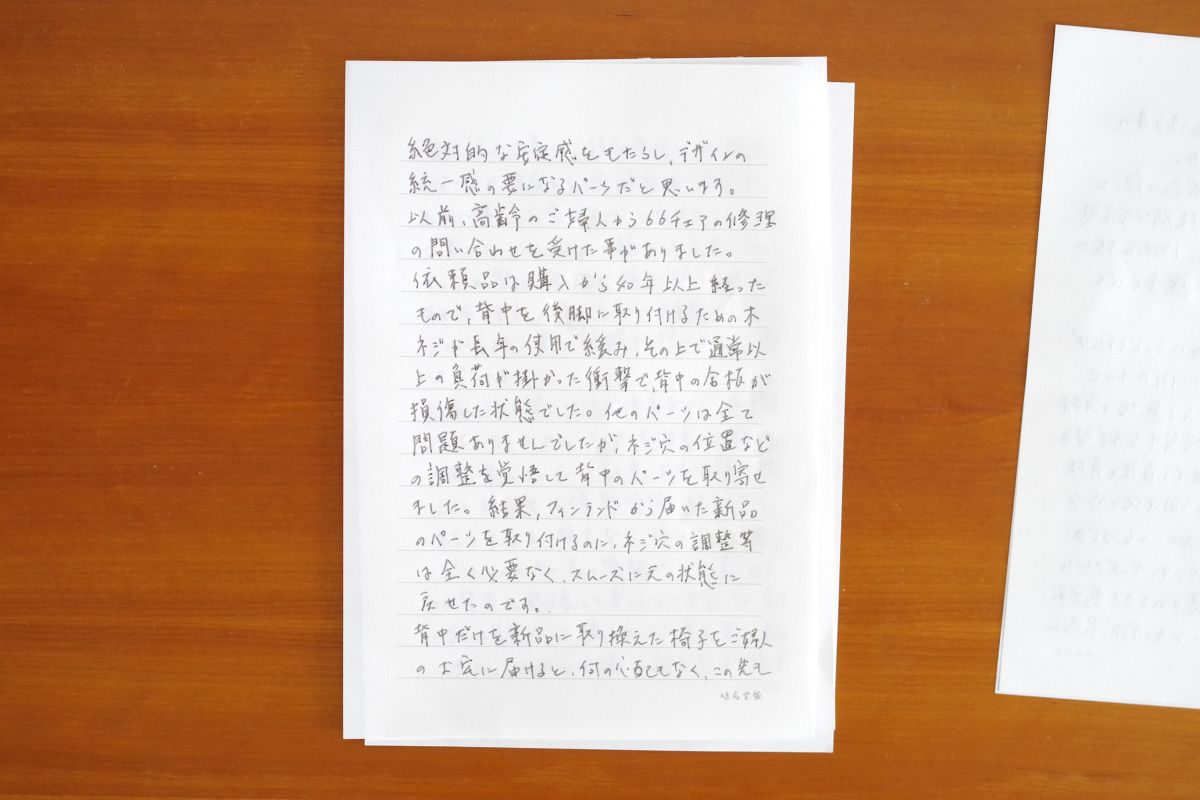 絶対的な安定感をもたらし、デザインの
統一感の要になるパーツだと思います。
以前、高齢のご婦人から66チェアの修理
の問い合わせを受けた事がありました。
依頼品は購入から40年以上経った
もので、背中を後脚に取り付けるための木
ネジが長年の使用で緩み、その上で通常以
上の負荷が掛かった衝撃で、背中の合板が
損傷した状態でした。他のパーツは全て
問題ありませんでしたが、ネジ穴の位置など
の調整を覚悟して背中のパーツを取り寄せ
ました。結果、フィンランドから届いた新品
のパーツを取り付けるのに、ネジ穴の調整等
は全く必要なく、スムーズに元の状態に
戻せたのです。
背中だけを新品に取り換えた椅子をご婦人
のお宅に届けると、何の心配もなく、この先も